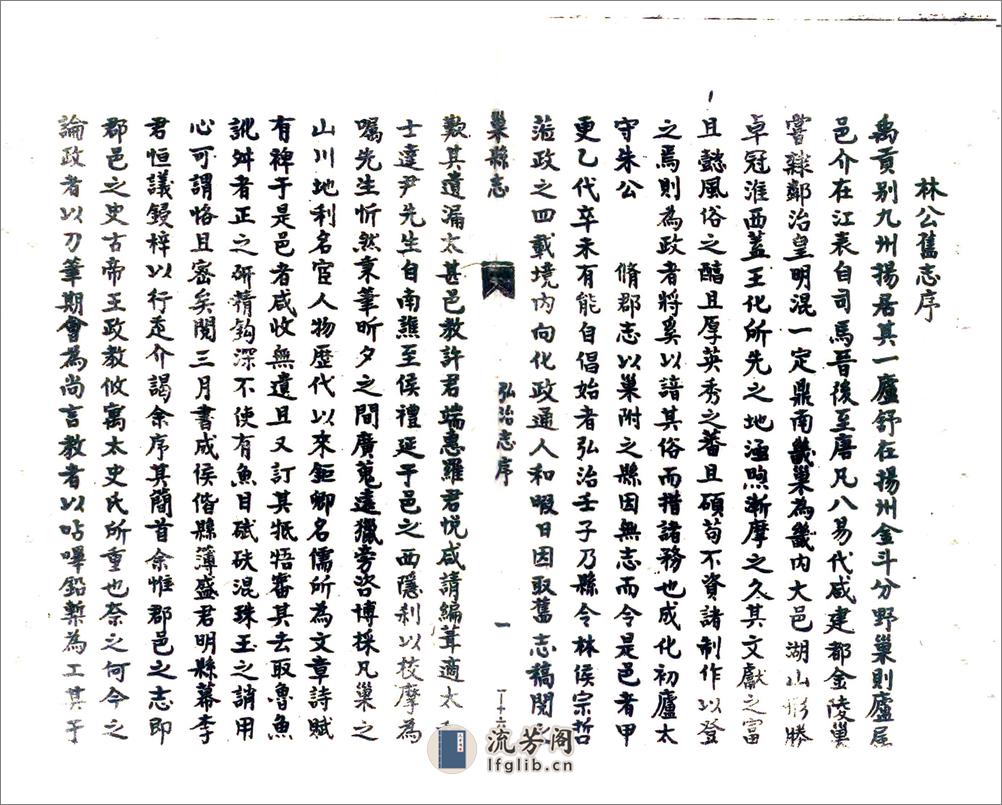 林公舊志序
禹貢别九州揚居其一廬舒在揚州金斗分野巢則廬屬
邑介在江表自司馬晉後至唐凡八易代咸建都金陵巢
嘗隸鄰治皇明混一定鼎南畿巢為畿内大邑湖山形勝
卓冠淮西蓋王化所先之地涵煦漸摩之久其文獻之富
且懿風俗之醕且厚英秀之蕃且碩苟不資諸制作以登
之焉則為政者將奚以諳其俗而措諸務也成化初廬太
守朱公 脩郡志以巢附之縣因無志而令是邑者甲
更乙代卒未有能自倡始者弘治壬子乃縣令林侯宗哲
蒞政之四載境内向化政通人和暇日因取舊志稿閱之
巢縣志
弘治志序
一
歎其遺漏太甚邑教許君端惠羅君悦咸請編葺適太
士達尹先生自南譙至侯禮延于邑之西隱刹以校摩為
囑先生忻然秉筆昕夕之間廣蒐遠獵旁咨博採凡巢之
山川地利名宦人物歷代以來鉅卿名儒所為文章詩賦
有裨于是邑者咸收無遺且又訂其牴牾審其去取魯魚
訛舛者正之研精鈎深不使有魚目碔砆混珠玉之誚用
心可謂恪且密矣閱三月書成侯偕縣簿盛君明縣幕李
君恒議鋟梓以行走介謁余序其簡首余惟郡邑之志即
郡邑之史古帝王政教攸寓太史氏所重也奈之何今之
論政者以刀筆期會為尚言教者以呫嗶鉛槧為工其于
流芳阁
lfglib.cn